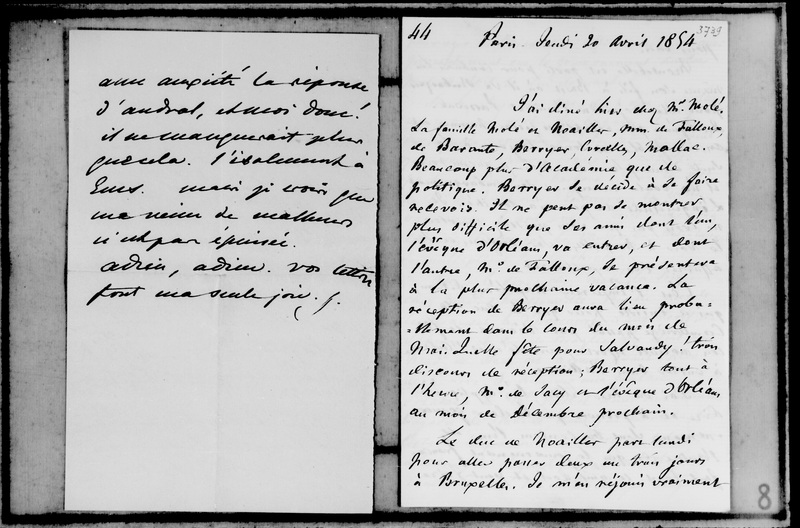 avec anxiété la réponse
d'andral, et moi donc!
il ne manquerait plus
que cela. l'isolement à
Ems. mais je crois que
ma veine de malheurs
n'est pas épuisée.
adieu, adieu. vos lettres
font ma seule joie.
44
3739
Paris. Jeudi 20 avril 1854
J'ai diné hier chez Mr. Molé.
La famille Molé et Noailles, Mm. de Falloux,
de Barante, Berryer, Corcelles, Mallac.
Beaucoup plus d'Académie que de
politique. Berryer se décide à se faire
recevoir. Il ne peut pas se montrer
plus difficile que ses amis dont l'un,
l'évêque d'Orléans, va entrer, et dont
l'autre, Mr. de Falloux, se présentera
à la plus prochaine vacance. La
réception de Berryer aura lieu proba-
-blement dans le cours du mois de
Mai. Quelle fête pour Salvandy! trois
discours de réception; Berryer tout à
l'heure, Mr. de Sacy et l'évêque d'Orléans
au mois de Décembre prochain.
Le duc de Noailles part lundi
pour aller passer deux ou trois jours
à Bruxelles. Je m'en réjouis vraiment
8